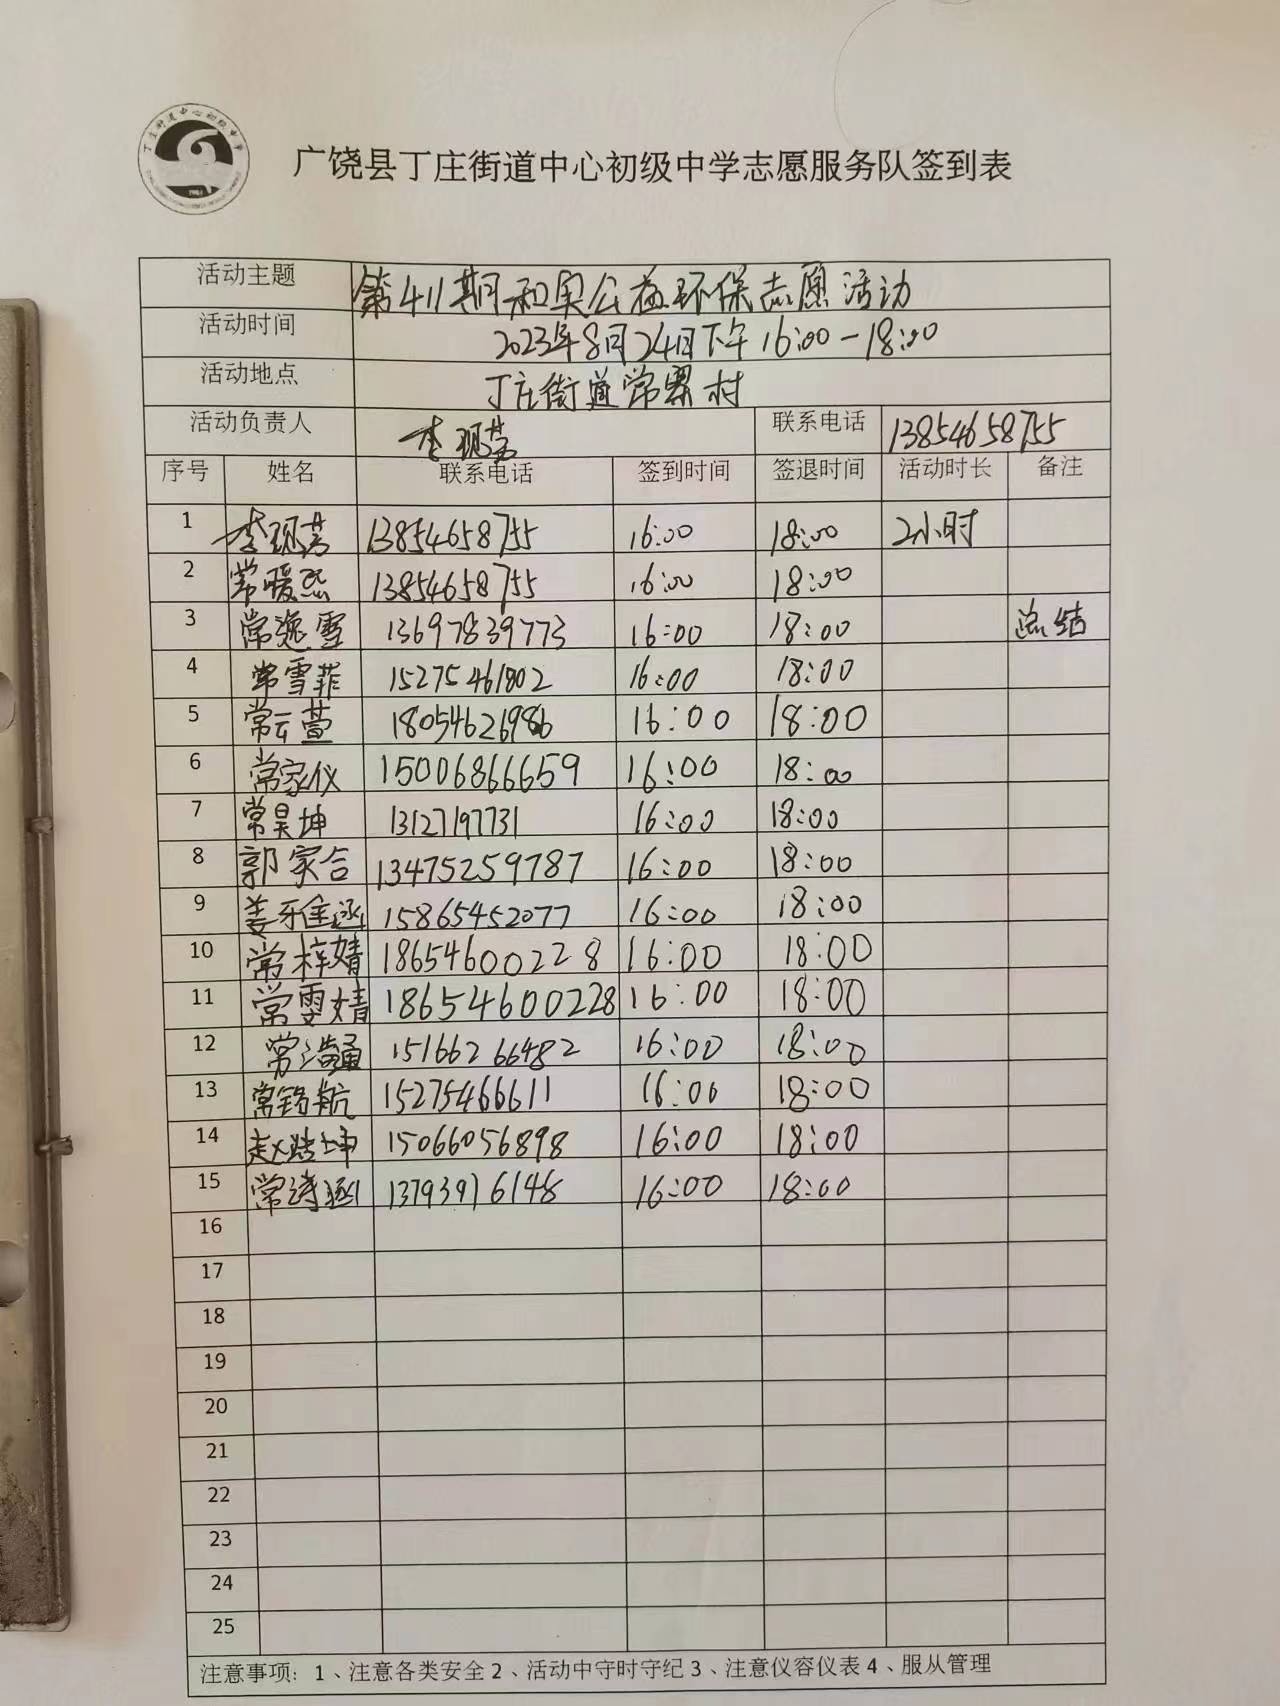 广饶县丁庄街道中心初级中学志愿服务队签到表
活动主题 第411期和美公益环保志愿活动
活动时间 2023年8月24日下午16:00-18:00
活动地点 丁庄街道常 村
活动负责人 李 联系电话 13854658755
序号 姓名 联系电话 签到时间 签退时间 活动时长 备注
1 李 13854658755 16:00 18:00 2小时
2 常暖熙 13854658755 16:00 18:00
3 常逸雪 13697839773 16:00 18:00 总结
4 常雪菲 15275461802 16:00 18:00
5 常云萱 18054626986 16:00 18:00
6 常家仪 15006866659 16:00 18:00
7 常昊坤 13127197731 16:00 18:00
8 郭家合 13475259787 16:00 18:00
9 姜雅涵 15865452077 16:00 18:00
10 常梓婧 18654600228 16:00 18:00
11 常雯婧 18654600228 16:00 18:00
12 常 15166266482 16:00 18:00
13 常铭航 15275466611 16:00 18:00
14 赵 坤 15066056898 16:00 18:00
15 常诗涵 13793976148 16:00 18:00
16
17
18
19
20
21
22
23
24
25
注意事项：1、注意各类安全 2、活动中守时守纪 3、注意仪容仪表 4、服从管理